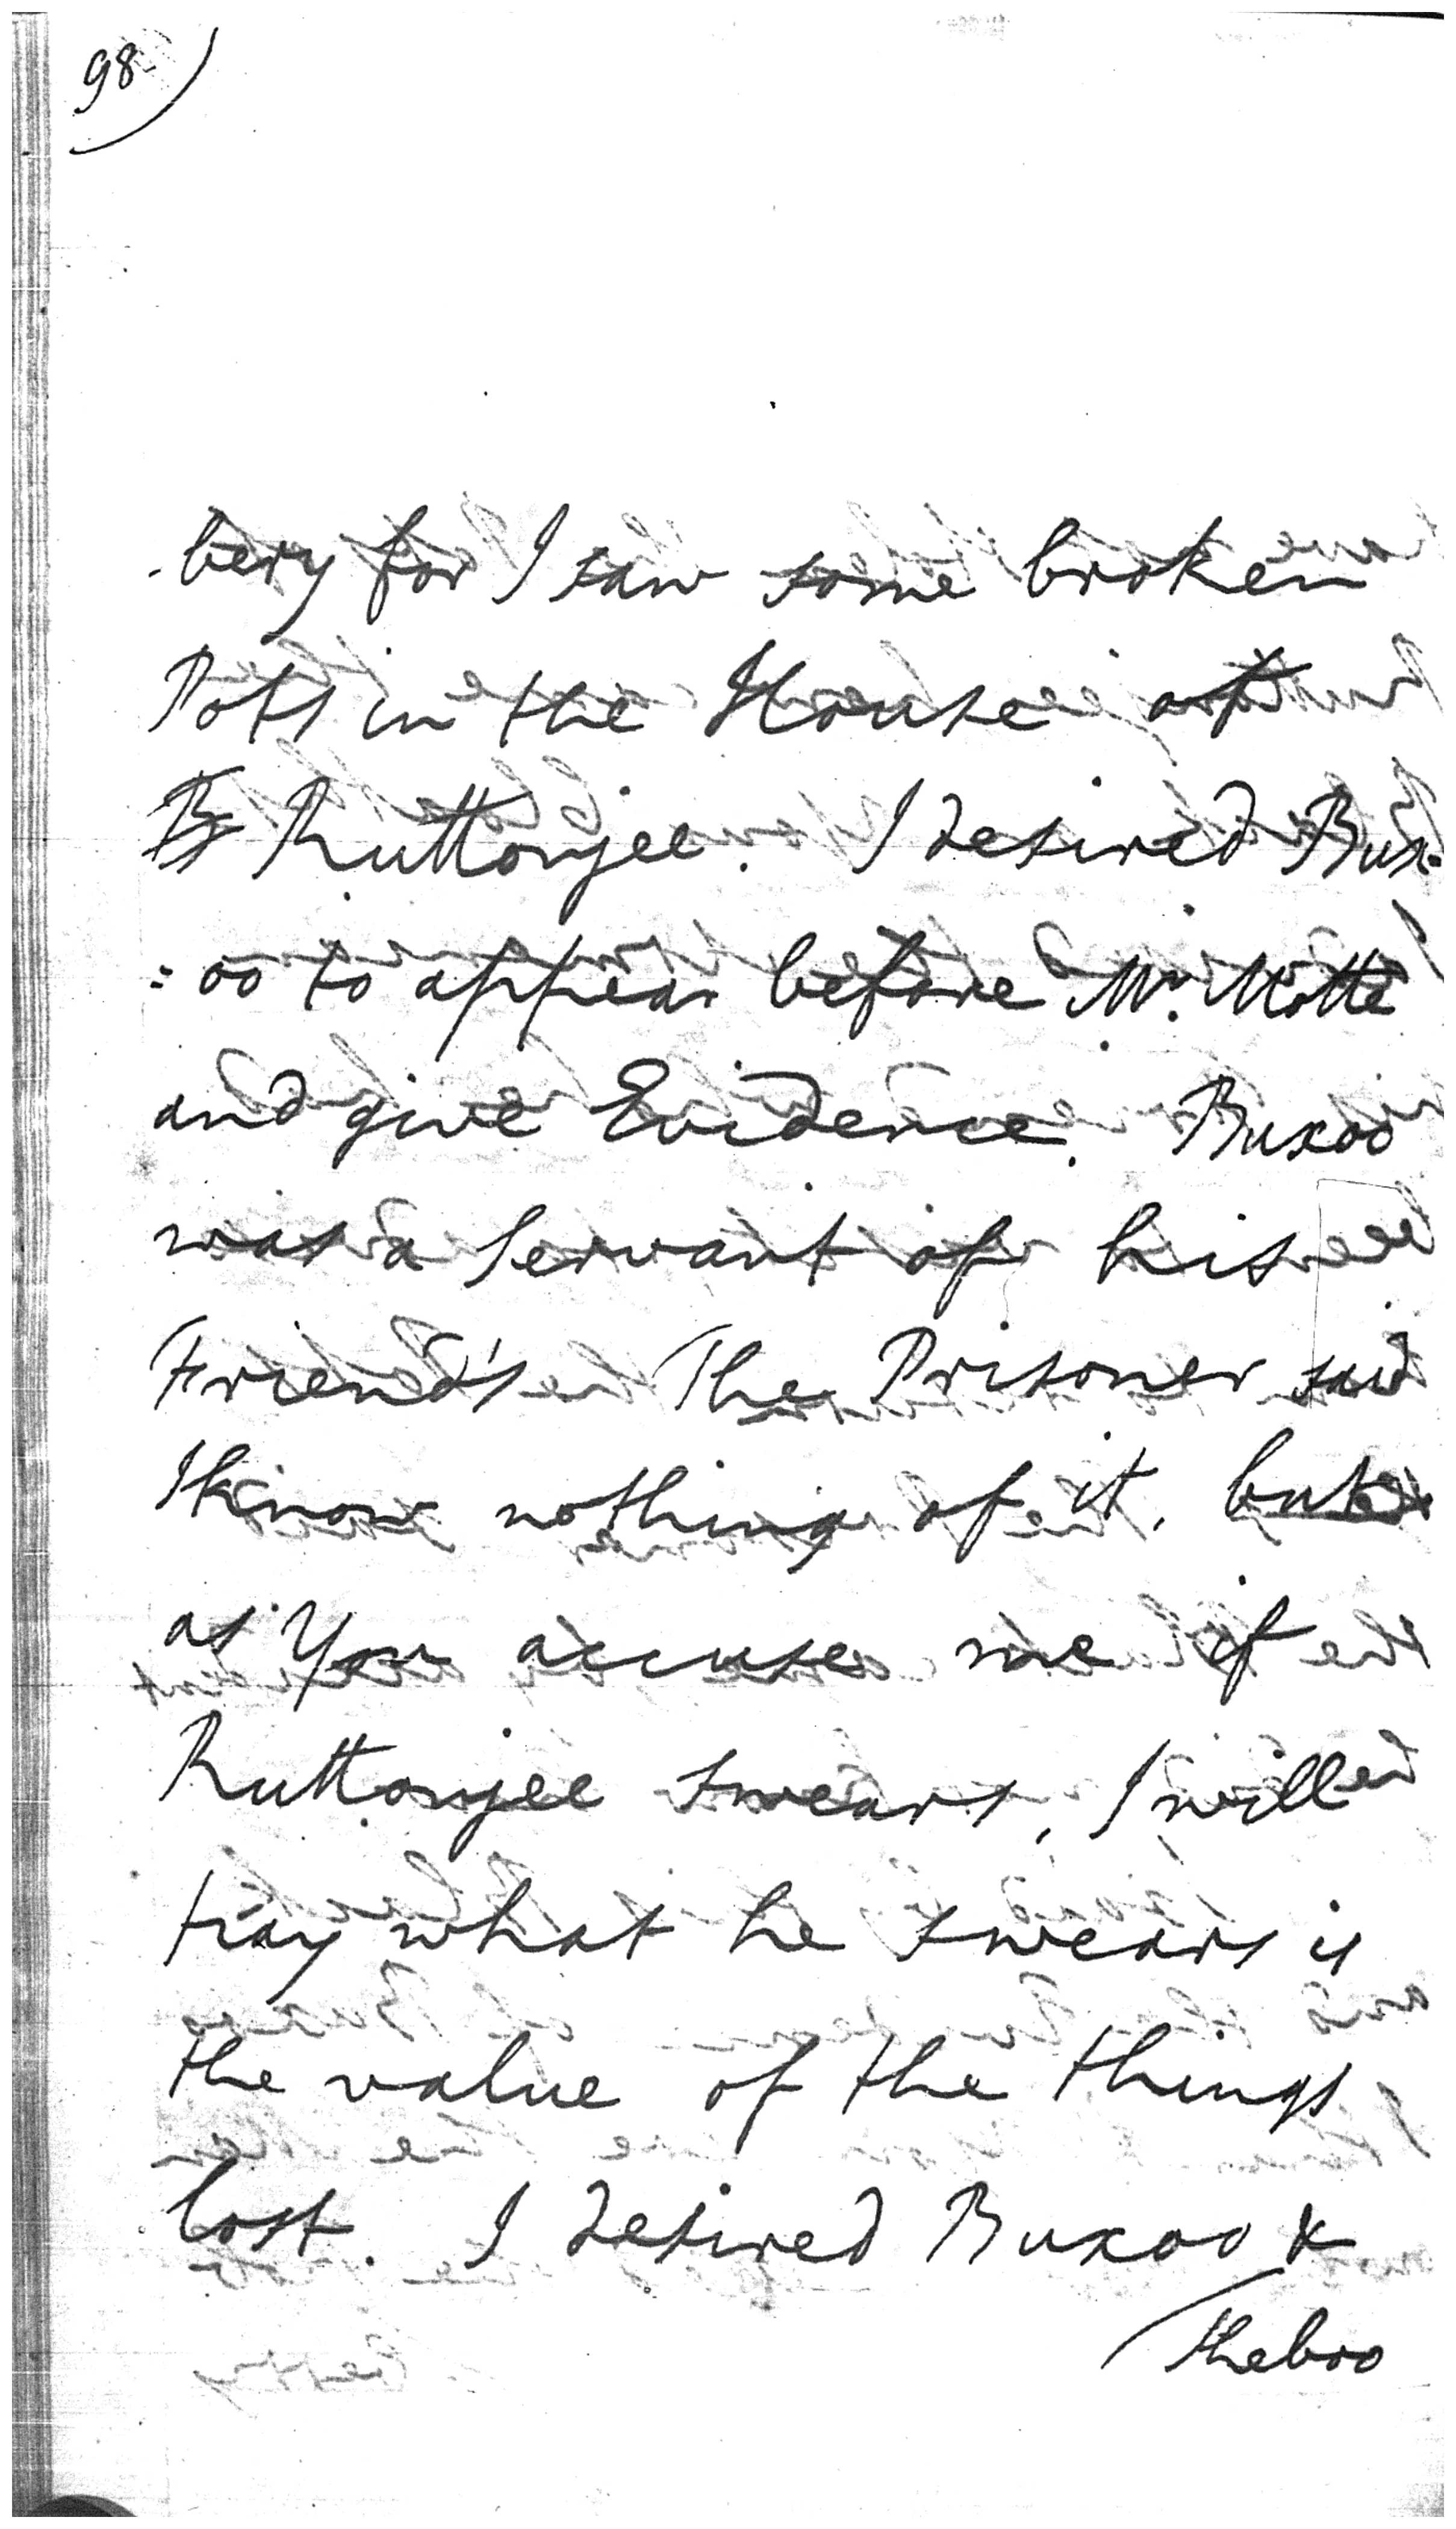 98
-bery for I saw some broken
Pots in the House of
Ruttonjee. I desired Bux-
:oo to appear before Mr. Motte
and give Evidence. Buxoo
was a Servant of his
Friend's The Prisoner said
I know nothing of it, but
as You accuse me if
Ruttonjee swears, I will
pay what he swears is
the value of the things
lost. I desired Buxoo &
Sheboo